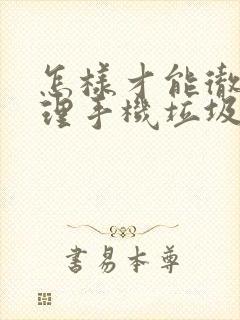 怎樣才能徹
理手機垃圾
書易本尊